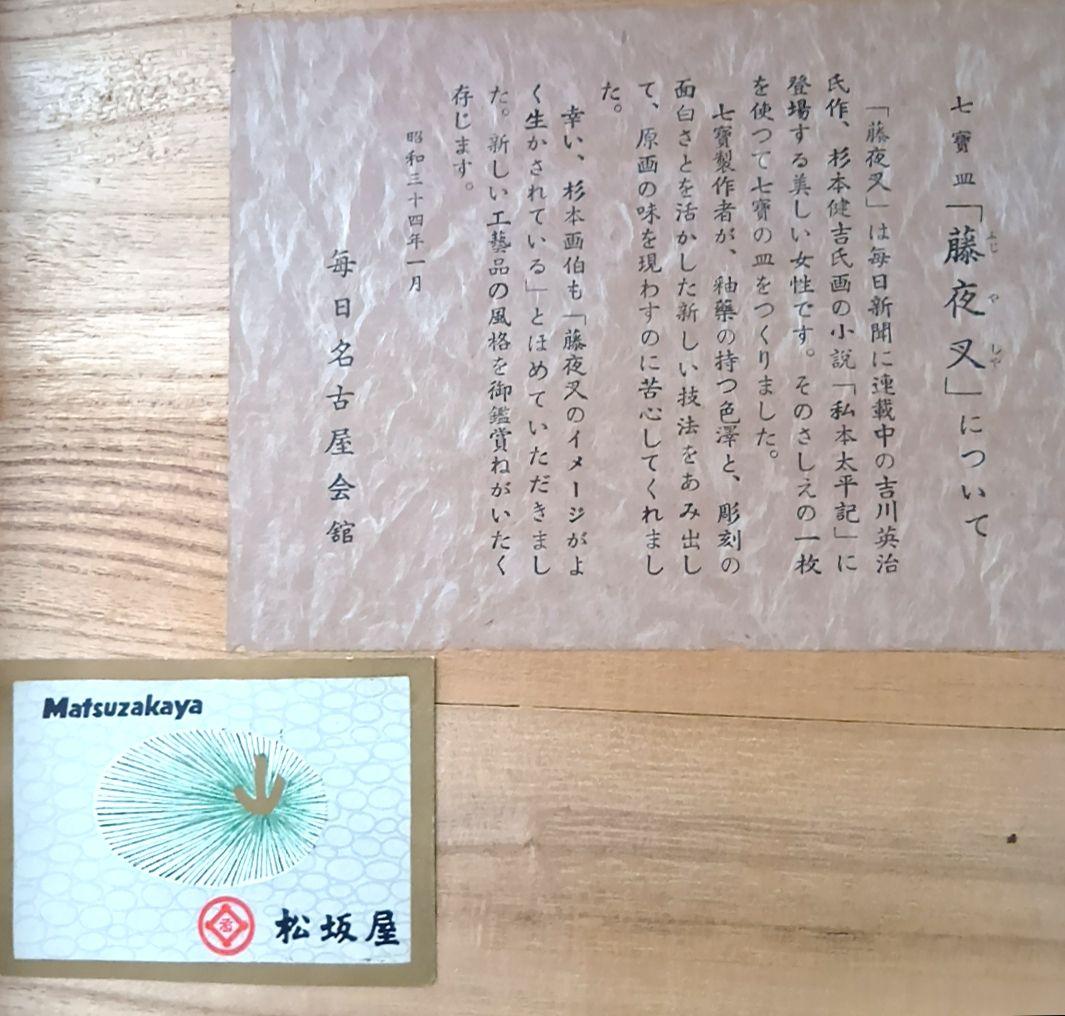 七寳皿「藤夜叉」について
ふじ や しや
「藤夜叉」は毎日新聞に連載中の吉川英治
氏作、杉本健吉氏画の小説「私本太平記」に
登場する美しい女性です。そのさしえの一枚
を使つて七寳の皿をつくりました。
七寳製作者が、釉藥の持つ色澤と、彫刻の
面白さとを活かした新しい技法をあみ出し
て、原画の味を現わすのに苦心してくれまし
た。
幸い、杉本画伯も「藤夜叉のイメージがよ
く生かされている」とほめていただきまし
た。新しい工藝品の風格を御鑑賞ねがいたく
存じます。
昭和三十四年一月
毎日名古屋会舘
Matsuzakaya
松坂屋